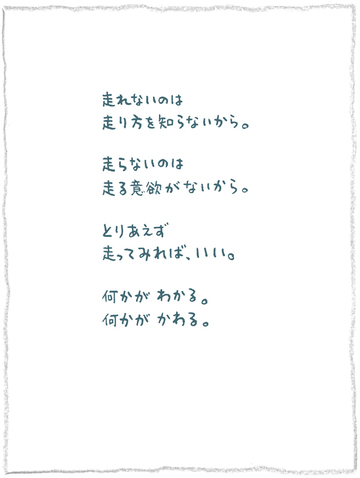 走れないのは
走り方を知らないから。
走らないのは
走る意欲がないから。
とりあえず
走ってみれば、いい。
何かが わかる。
何かが かわる。